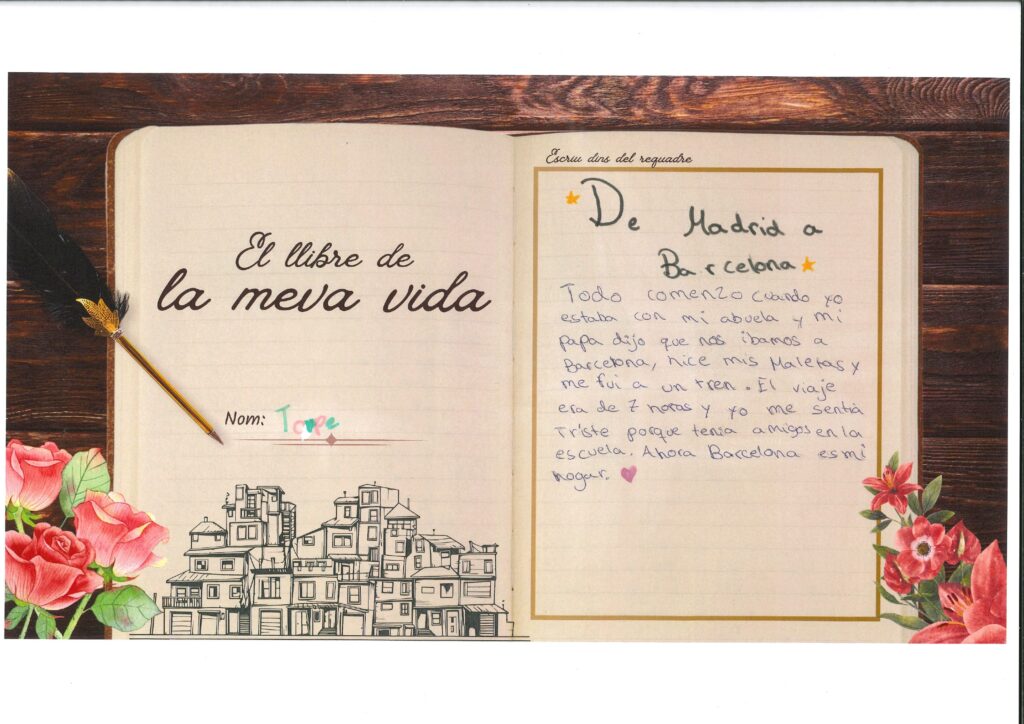 El llibre de
la meva vida
Nom: Torpe
Escriu dins del requadre
De Madrid a
Barcelona
Todo comenzo cuando yo
estaba con mi abuela y mi
papa dijo que nos ibamos a
Barcelona, hice mis Maletas y
me fui a un tren. El viaje
era de 7 horas y yo me sentía
Triste porque tenia amigos en la
escuela. Ahora Barcelona es mi
hogar.